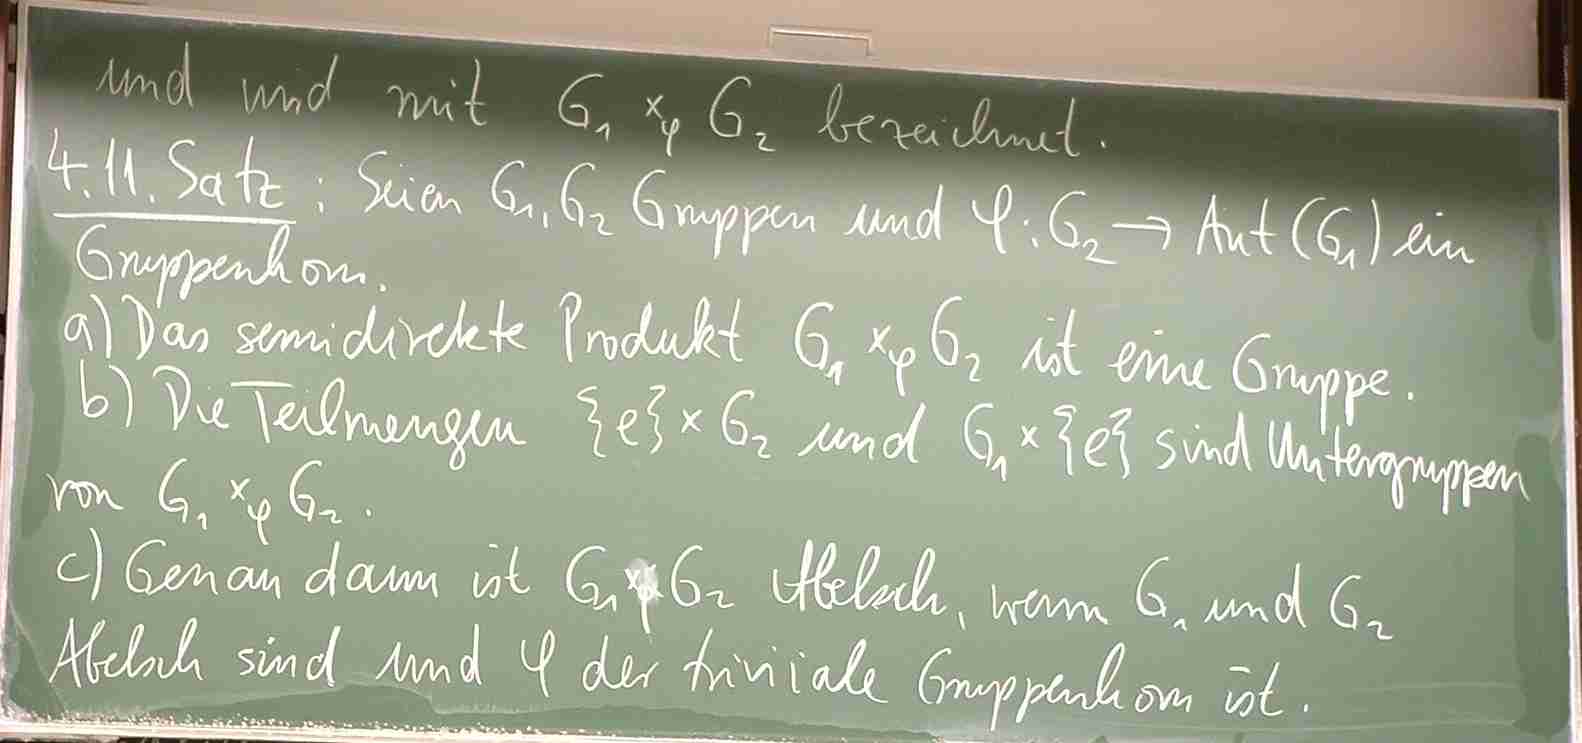 und wird mit G₁ ×φ G₂ bezeichnet.
4.11. Satz: Seien G₁, G₂ Gruppen und φ: G₂ → Aut(G₁) ein
Gruppenhom.
a) Das semidirekte Produkt G₁ ×φ G₂ ist eine Gruppe.
b) Die Teilmengen {e} × G₂ und G₁ × {e} sind Untergruppen
von G₁ ×φ G₂.
c) Genau dann ist G₁ ×φ G₂ Abelsch, wenn G₁ und G₂
Abelsch sind und φ der triviale Gruppenhom ist.